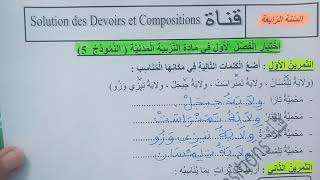 السنة الرابعة
قناة Solution des Devoirs et Compositions
اختبار الفصل الأول في مادة التربية المدنية ( النموذج 5)
التمرين الأول : أضع الكلمات التالية في مكانها المناسب:
(ولاية تلمسان - ولاية تمنراست - ولاية جيجل - ولاية تيزي وزو)
- محمية تازا ولاية جيجل
- محمية ولاية تمنراست
- محمية ولاية تيزي وزو
- محمية ولاية تلمسان
التمرين الثاني : بما يناسبه: